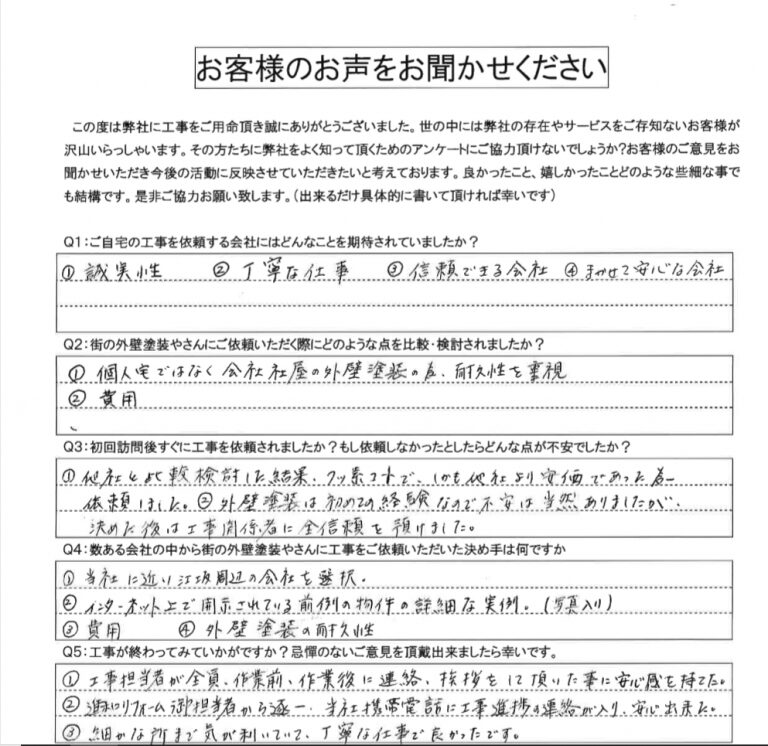 お客様のお声をお聞かせください
この度は弊社に工事をご用命頂き誠にありがとうございました。世の中には弊社の存在やサービスをご存知ないお客様が
沢山いらっしゃいます。その方たちに弊社をよく知って頂くためのアンケートにご協力頂けないでしょうか?お客様のご意見をお
聞かせいただき今後の活動に反映させていただきたいと考えております。良かったこと、嬉しかったことどのような些細な事で
も結構です。是非ご協力お願い致します。(出来るだけ具体的に書いて頂ければ幸いです)
Q1:ご自宅の工事を依頼する会社にはどんなことを期待されていましたか?
① 誠実性 ② 丁寧な仕事 ③ 信頼できる会社 ④ まかせて安心な会社
Q2:街の外壁塗装やさんにご依頼いただく際にどのような点を比較・検討されましたか?
① 個人宅ではなく会社社屋の外壁塗装の為、耐久性を重視
② 費用
Q3:初回訪問後すぐに工事を依頼されましたか?もし依頼しなかったとしたらどんな点が不安でしたか?
① 他社と比較検討した結果、フッ素コートで、しかも他社より安価であった為
依頼しました。② 外壁塗装は初めての経験なので不安は当然ありましたが、
決めた後は工事関係者に全信頼を預けました。
Q4:数ある会社の中から街の外壁塗装やさんに工事をご依頼いただいた決め手は何ですか
① 当社に近い江坂周辺の会社を選択。
② インターネット上で開示されている前例の物件の詳細な実例。(写真入り)
③ 費用 ④ 外壁塗装の耐久性
Q5:工事が終わってみていかがですか?忌憚のないご意見を頂戴出来ましたら幸いです。
① 工事担当者が全員、作業前、作業後に連絡、挨拶をして頂いた事に安心感を持てた。
② リフォーム御担当者から逐一、当社携帯電話に工事進捗の連絡が入り、安心出来た。
③ 細かな所まで気が利いていて、丁寧な仕事で良かったです。